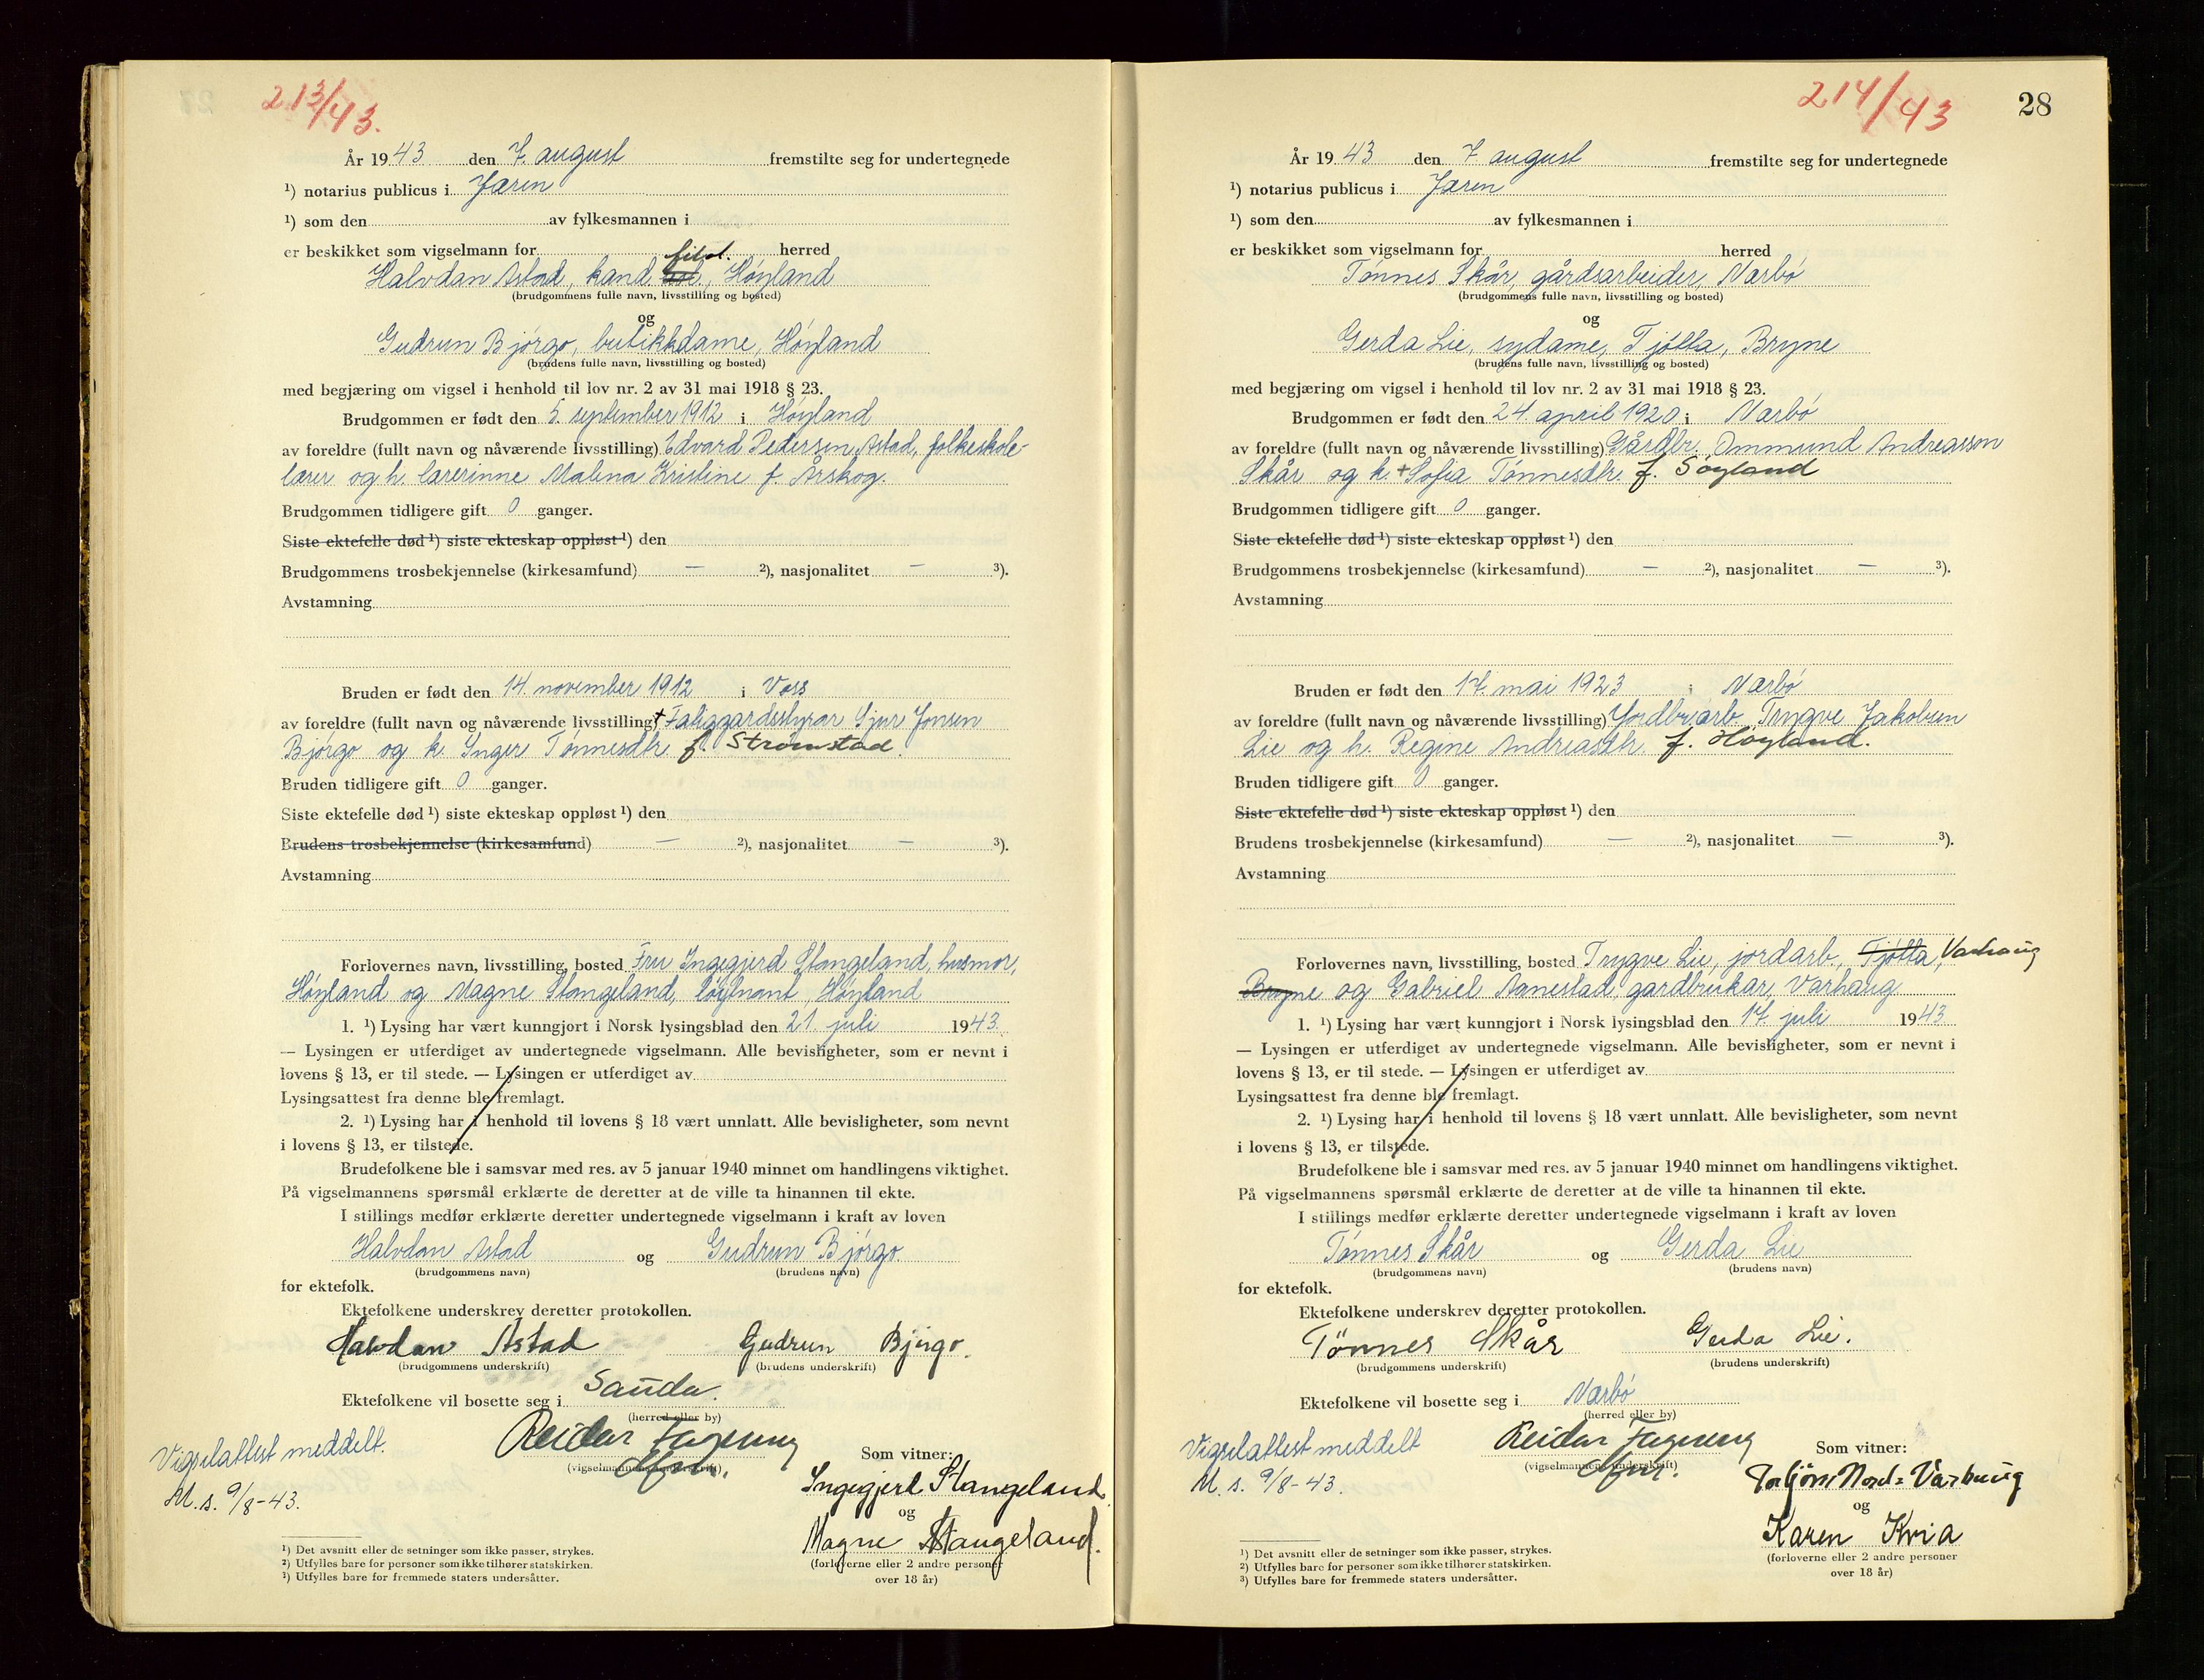 213/43.
År 1943 den 7. august fremstilte seg for undertegnede
¹) notarius publicus i Jæren
¹) som den av fylkesmannen i
er beskikket som vigselmann for herred
filol.
Halvdan Astad, kand. , Høyland
(brudgommens fulle navn, livsstilling og bosted)
og
Gudrun Bjørgo, butikkdame, Høyland
(brudens fulle navn, livsstilling og bosted)
med begjæring om vigsel i henhold til lov nr. 2 av 31 mai 1918 § 23.
Brudgommen er født den 5. september 1912 i Høyland
av foreldre (fullt navn og nåværende livsstilling) Edvard Pedersen Astad, folkeskole-
lærer og h. lærerinne Malena Kristine f. Årskog.
Brudgommen tidligere gift 0 ganger.
Siste ektefelle død ¹) siste ekteskap oppløst ¹) den
Brudgommens trosbekjennelse (kirkesamfund) — ²), nasjonalitet — ³).
Avstamning
Bruden er født den 14. november 1912 i Voss
av foreldre (fullt navn og nåværende livsstilling) + Fattiggardsstyrar Sjur Jonsen
Bjørgo og k. Inger Tønnesdtr. f. Strømstad.
Bruden tidligere gift 0 ganger.
Siste ektefelle død ¹) siste ekteskap oppløst ¹) den
Brudens trosbekjennelse (kirkesamfund) — ²), nasjonalitet — ³).
Avstamning
Forlovernes navn, livsstilling, bosted Fru Ingegjerd Stangeland, husmor,
Høyland og Magne Stangeland, løytnant, Høyland
1. ¹) Lysing har vært kunngjort i Norsk lysingsblad den 21. juli 1943.
— Lysingen er utferdiget av undertegnede vigselmann. Alle bevisligheter, som er nevnt i
lovens § 13, er til stede. — Lysingen er utferdiget av
Lysingsattest fra denne ble fremlagt.
2. ¹) Lysing har i henhold til lovens § 18 vært unnlatt. Alle bevisligheter, som nevnt
i lovens § 13, er tilstede.
Brudefolkene ble i samsvar med res. av 5 januar 1940 minnet om handlingens viktighet.
På vigselmannens spørsmål erklærte de deretter at de ville ta hinannen til ekte.
I stillings medfør erklærte deretter undertegnede vigselmann i kraft av loven
Halvdan Astad og Gudrun Bjørgo.
(brudgommens navn) (brudens navn)
for ektefolk.
Ektefolkene underskrev deretter protokollen.
Halvdan Astad Gudrun Bjørgo.
(brudgommens underskrift) (brudens underskrift)
Ektefolkene vil bosette seg i Sauda.
(herred eller by)
Reidar Fagereng
(vigselmannens underskrift)
Vigselattest meddelt.
M.s. 9/8-43.
Som vitner:
Ingegjerd Stangeland
og
Magne Stangeland.
(forloverne eller 2 andre personer
over 18 år)
¹) Det avsnitt eller de setninger som ikke passer, strykes.
²) Utfylles bare for personer som ikke tilhører statskirken.
³) Utfylles bare for fremmede staters undersåtter.
214/43
28
År 1943 den 7. august fremstilte seg for undertegnede
¹) notarius publicus i Jæren
¹) som den av fylkesmannen i
er beskikket som vigselmann for herred
Tønnes Skår, gårdsarbeider, Nærbø
(brudgommens fulle navn, livsstilling og bosted)
og
Gerda Lie, sydame, Tjøtta, Bryne
(brudens fulle navn, livsstilling og bosted)
med begjæring om vigsel i henhold til lov nr. 2 av 31 mai 1918 § 23.
Brudgommen er født den 24. april 1920 i Nærbø
av foreldre (fullt navn og nåværende livsstilling) Gårdbr. Ommund Andreassen
Skår og k. + Sofia Tønnesdtr. f. Søyland
Brudgommen tidligere gift 0 ganger.
Siste ektefelle død ¹) siste ekteskap oppløst ¹) den
Brudgommens trosbekjennelse (kirkesamfund) — ²), nasjonalitet — ³).
Avstamning
Bruden er født den 17. mai 1923 i Nærbø
av foreldre (fullt navn og nåværende livsstilling) Jordbr.arb. Trygve Jakobsen
Lie og h. Regine Andreasdtr. f. Høyland.
Bruden tidligere gift 0 ganger.
Siste ektefelle død ¹) siste ekteskap oppløst ¹) den
Brudens trosbekjennelse (kirkesamfund) — ²), nasjonalitet — ³).
Avstamning
Forlovernes navn, livsstilling, bosted Trygve Lie, jordarb., Tjøtta, Varhaug
Bryne og Gabriel Aanestad, gardbrukar, Varhaug
1. ¹) Lysing har vært kunngjort i Norsk lysingsblad den 17. juli 1943
— Lysingen er utferdiget av undertegnede vigselmann. Alle bevisligheter, som er nevnt i
lovens § 13, er til stede. — Lysingen er utferdiget av
Lysingsattest fra denne ble fremlagt.
2. ¹) Lysing har i henhold til lovens § 18 vært unnlatt. Alle bevisligheter, som nevnt
i lovens § 13, er tilstede.
Brudefolkene ble i samsvar med res. av 5 januar 1940 minnet om handlingens viktighet.
På vigselmannens spørsmål erklærte de deretter at de ville ta hinannen til ekte.
I stillings medfør erklærte deretter undertegnede vigselmann i kraft av loven
Tønnes Skår og Gerda Lie
(brudgommens navn) (brudens navn)
for ektefolk.
Ektefolkene underskrev deretter protokollen.
Tönnes Skår Gerda Lie.
(brudgommens underskrift) (brudens underskrift)
Ektefolkene vil bosette seg i Nærbø
(herred eller by)
Reidar Fagereng
(vigselmannens underskrift)
Vigselattest meddelt
M.s. 9/8-43.
Som vitner:
Torfjørn Nord-Varhaug
og
Karen Kvia
(forloverne eller 2 andre personer
over 18 år)
¹) Det avsnitt eller de setninger som ikke passer, strykes.
²) Utfylles bare for personer som ikke tilhører statskirken.
³) Utfylles bare for fremmede staters undersåtter.